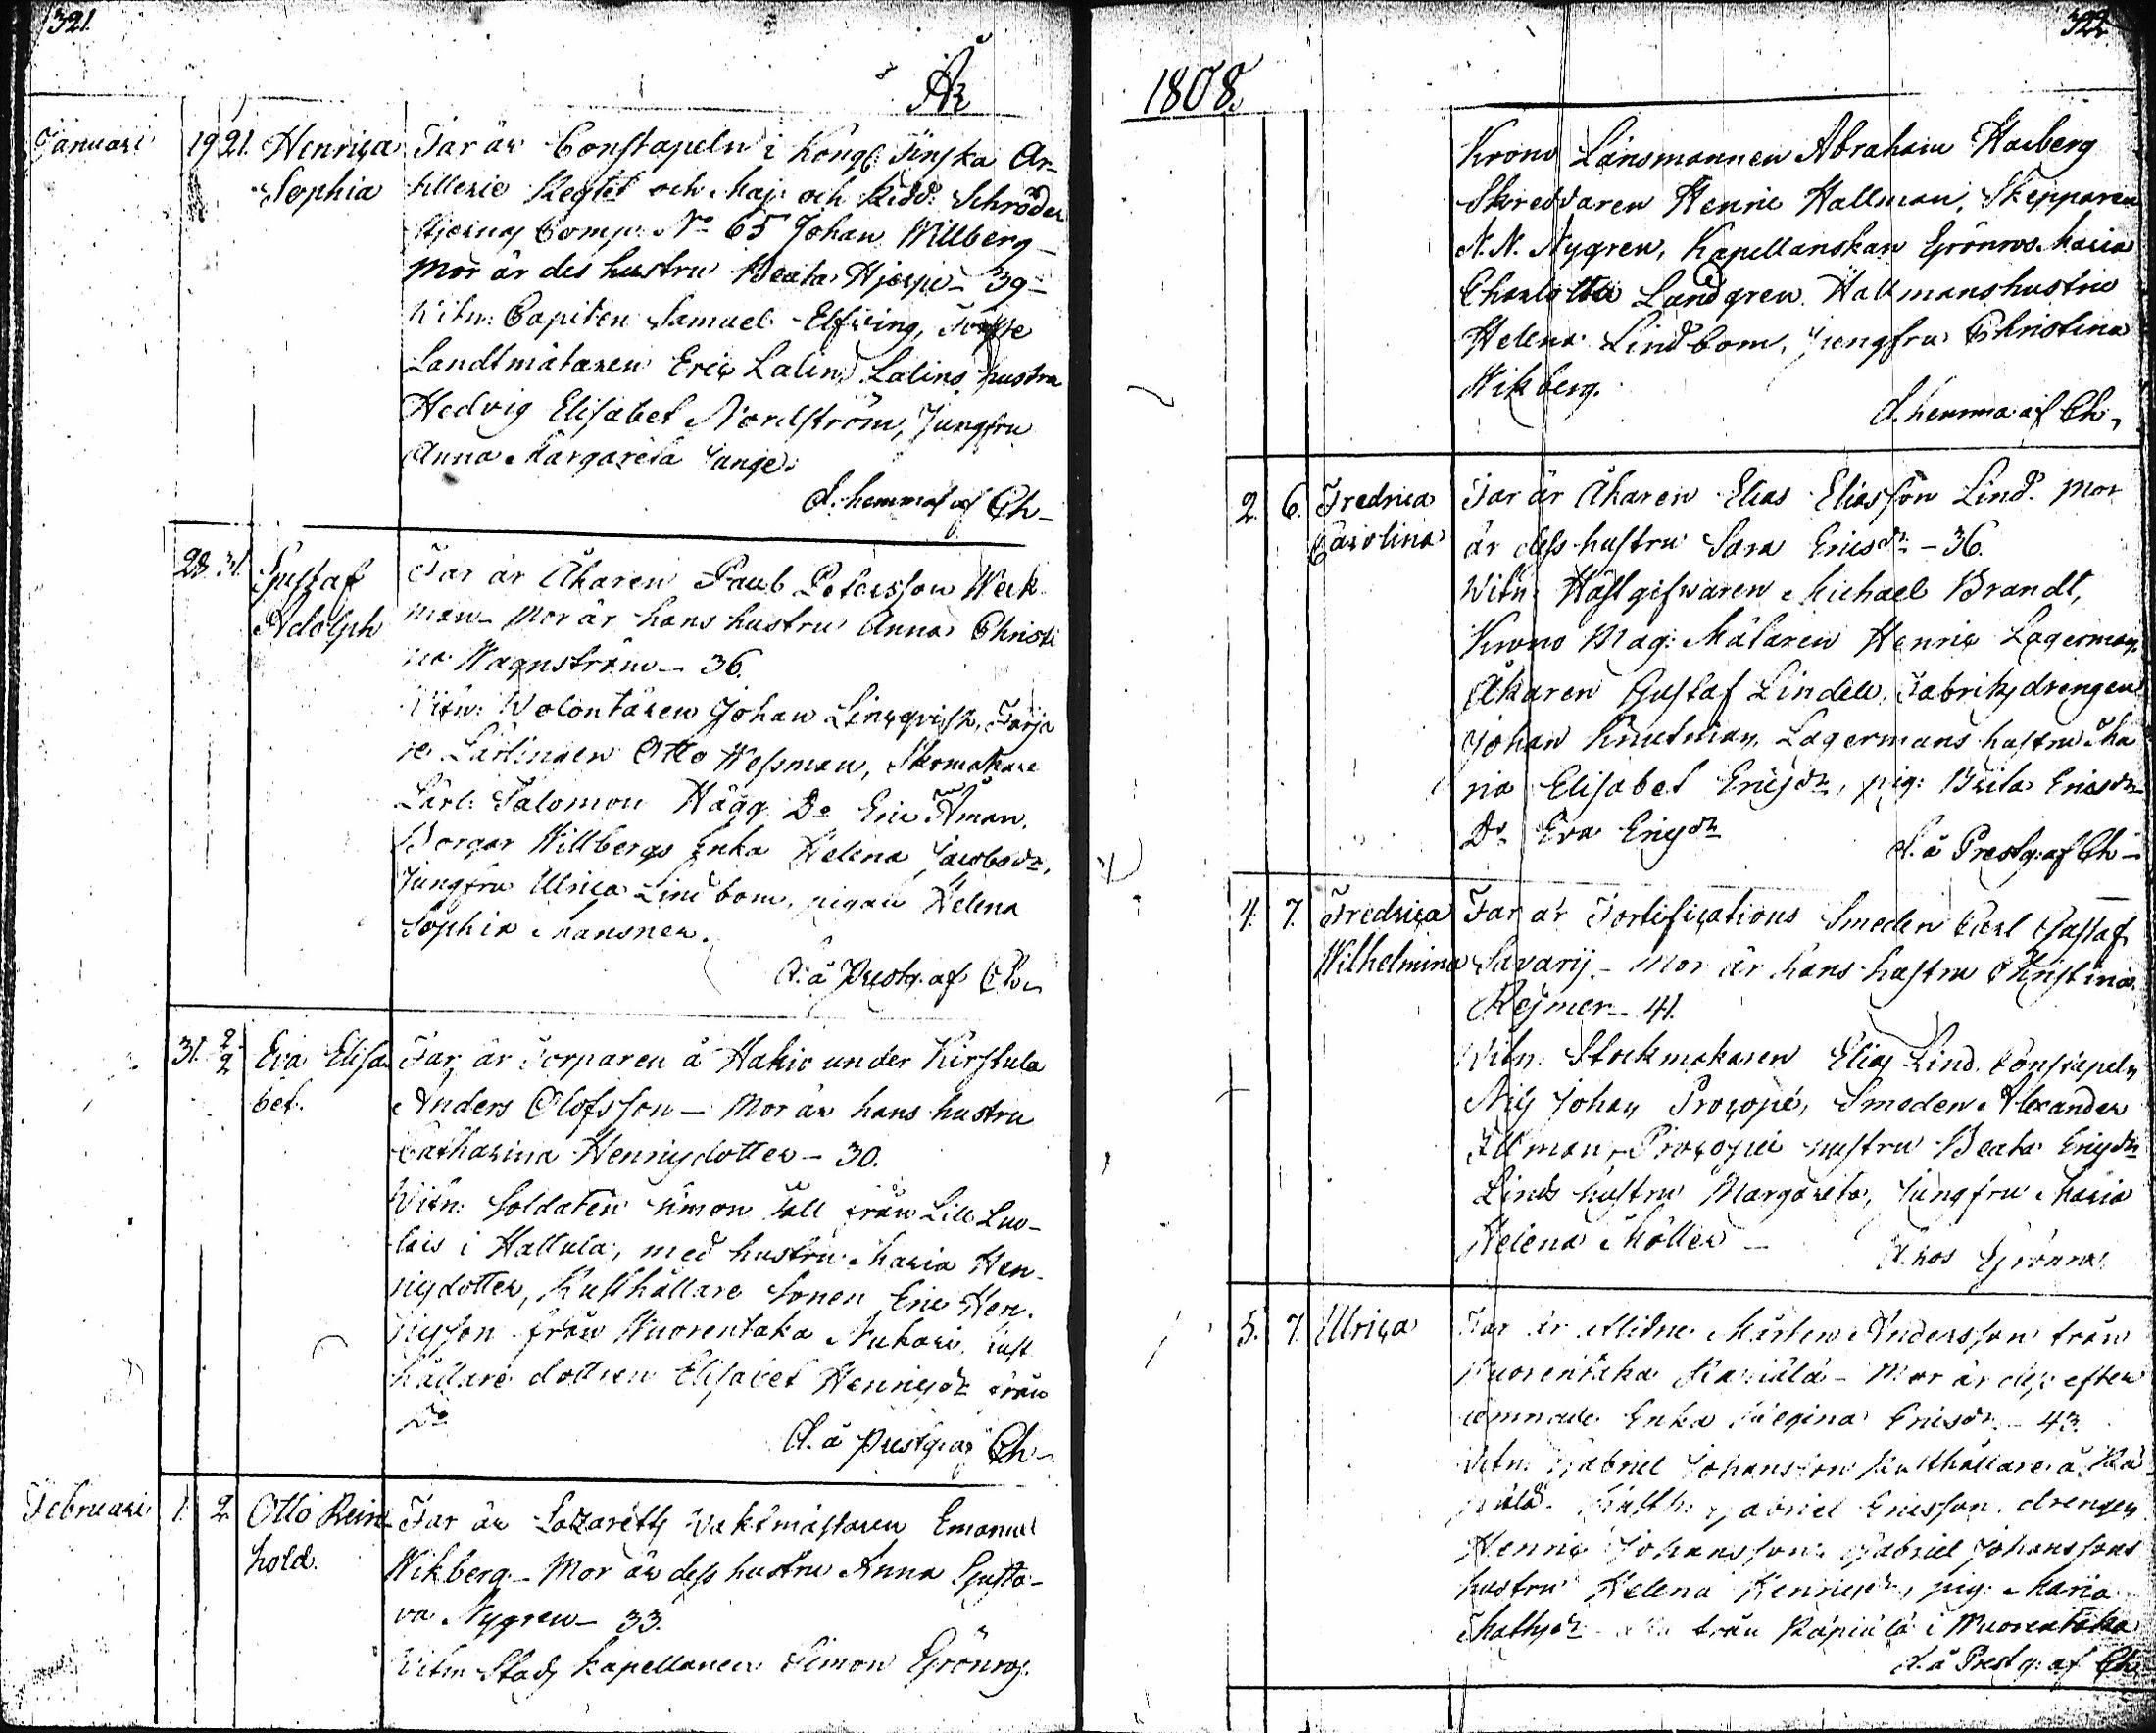 321.
År
Januari 19 21. Henrica Far är Constapeln i Kongl Finska Ar-
Sophia tillerie Regtet och Maj: och Ridd: Schröder
Comp: No 65 Johan Willberg
Mor är des hustru Beata Hjerpe - 39 -
Witn: Capiten Samuel Elfving,
Landtmätaren Eric Lalin, Lalins hustru
Hedvig Elisabet Nordström, Jungfru
Anna Margareta Junge.
d. hemma af Ch-
28. 31. Gustaf Far är Åkaren Paul Petersson Werk
Adolph man - Mor är hans hustru Anna Christi
na Wagnström - 36.
Witn: Volontären Johan Linqvist, Färja
re Lärlingen Otto Wessman, Skomakare
Lärl: Salomon Hägg Do Eric Åman.
Borgar Willbergs Enka Helena Jacobsdr,
Jungfru Ulrica Lindbom, pigan Helena
Sophia Mansner.
d. å Prestg: af Ch-
31. 2/2 Eva Elisa Far är Torparen å Hakio under Kirstula
bet. Anders Olofsson - Mor är hans hustru
Catharina Henricsdotter - 30.
Witn: Soldaten Simon Fäll från Lill Luo-
lais i Hattula, med hustru Maria Hen-
ricsdotter, Rusthållare Sonen Eric Hen-
ricsson från Wuorentaka Nukari, Rust
hållare dottren Elisabet Henricsdr från
Do
d. å Prestg: af Ch-
Februari 1. 2 Otto Rein- Far är Lazaretts Vaktmästaren Emanuel
hold. Wikberg - Mor är dess hustru Anna Gusta-
va Nygren - 33.
Witn Stads kapellanen Simon Grönros.
322
1808.
Krono Länsmannen Abraham Harberg
Skreddaren Henric Hallman, Skepparen
N. N. Nygren, Kapellanskan Grönros Maria
Charlotta Lundgren, Hallmans hustru
Helena Lindbom, Jungfru Christina
Wikberg.
d. hemma af Ch,
2. 6. Fredrica Far är Åkaren Elias Eliasson Lind. Mor
Carolina är dess hustru Sara Ericsdr - 36.
Witn: Hästgifwaren Michael Brandt,
Krono Mag: Mätaren Henric Lagerman,
Åkaren Gustaf Lindell, Fabriksdrengen
Johan Knutman, Lagermans hustru Ma
ria Elisabet Ericsdr, pig: Brita Ericsdr
Do Eva Ericsdr
d. å Prestg: af Ch-
4. 7. Fredrica Far är Fortifications Smeden Carl Gustaf
Wilhelmina Savarij. - Mor är hans hustru Christina
Rejmer - 41.
Witn: Stockmakaren Elias Lind. Constapeln
Nils Johan Procopé, Smeden Alexander
Illman, Procopei hustru Beata Ericsdr
Linds hustru Margareta, Jungfru Maria
Helena Möller -
d. hos Grönros
5. 7. Ulrica Far är Aflidne Mårten Andersson från
Wuorentaka - Mor är dess efter
lemnade Enka Regina Ericsdr - 43.
Witn: Gabriel Johansson Rusthållare å
Rusth: Gabriel Ericsson, drengen
Henric Johansson, Gabriel Johanssons
hustru Helena Henricsdr, pig: Maria
Mathsdr från i Wuorentaka
d. å Prestg: af Ch